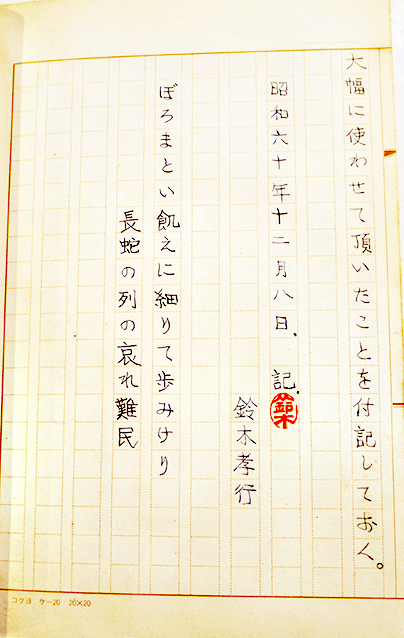 大幅に使わせて頂いたことを付記しておく。
昭和六十年十二月八日、記、
鈴木
鈴木孝行
ぼろまとい飢えに細りて歩みけり
長蛇の列の哀れ難民
コクヨ ケー20 20×20